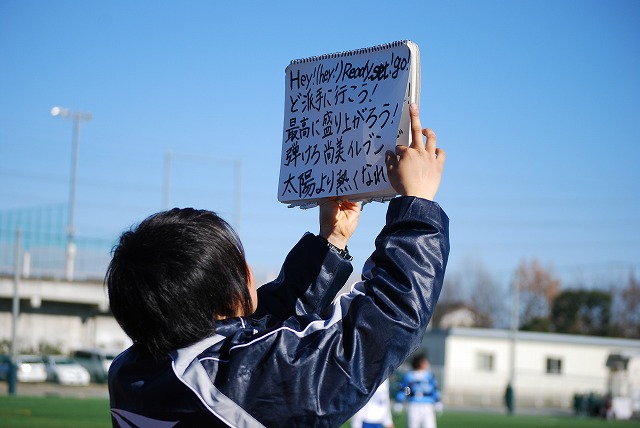 Hey!(hey!)Ready set!go!
ど派手に行こう!
最高に盛り上がろう!
弾けろ尚美イレブン
太陽より熱くなれ